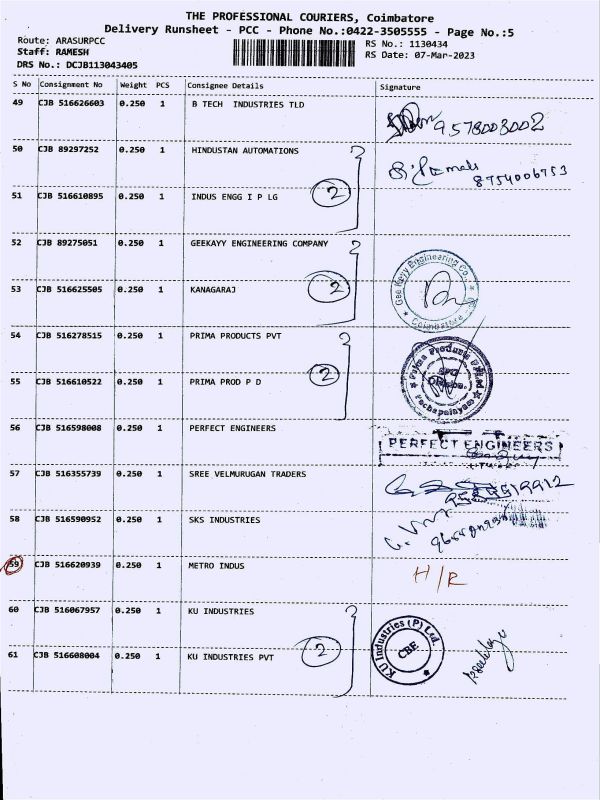 THE PROFESSIONAL COURIERS, Coimbatore
Delivery Runsheet - PCC - Phone No.:0422-3505555 - Page No.:5
Route: ARASURPCC
RS No.: 1130434
Staff: RAMESH
RS Date: 07-Mar-2023
DRS No.: DCJB113043405
S No Consignment No Weight PCS Consignee Details Signature
49 CJB 516626603 0.250 1 B TECH INDUSTRIES TLD
9578003002
50 CJB 89297252 0.250 1 HINDUSTAN AUTOMATIONS
8754006753
51 CJB 516610895 0.250 1 INDUS ENGG I P LG
2
52 CJB 89275051 0.250 1 GEEKAYY ENGINEERING COMPANY
Gee Kayy Engineering Co.,
Coimbatore
53 CJB 516625505 0.250 1 KANAGARAJ
2
54 CJB 516278515 0.250 1 PRIMA PRODUCTS PVT
Prima Products
Pachapalayam
55 CJB 516610522 0.250 1 PRIMA PROD P D
2
56 CJB 516598008 0.250 1 PERFECT ENGINEERS
PERFECT ENGINEERS
57 CJB 516355739 0.250 1 SREE VELMURUGAN TRADERS
58 CJB 516590952 0.250 1 SKS INDUSTRIES
59 CJB 516620939 0.250 1 METRO INDUS
H/R
60 CJB 516067957 0.250 1 KU INDUSTRIES
KU Industries (P) Ltd.
CBE
61 CJB 516608004 0.250 1 KU INDUSTRIES PVT
2